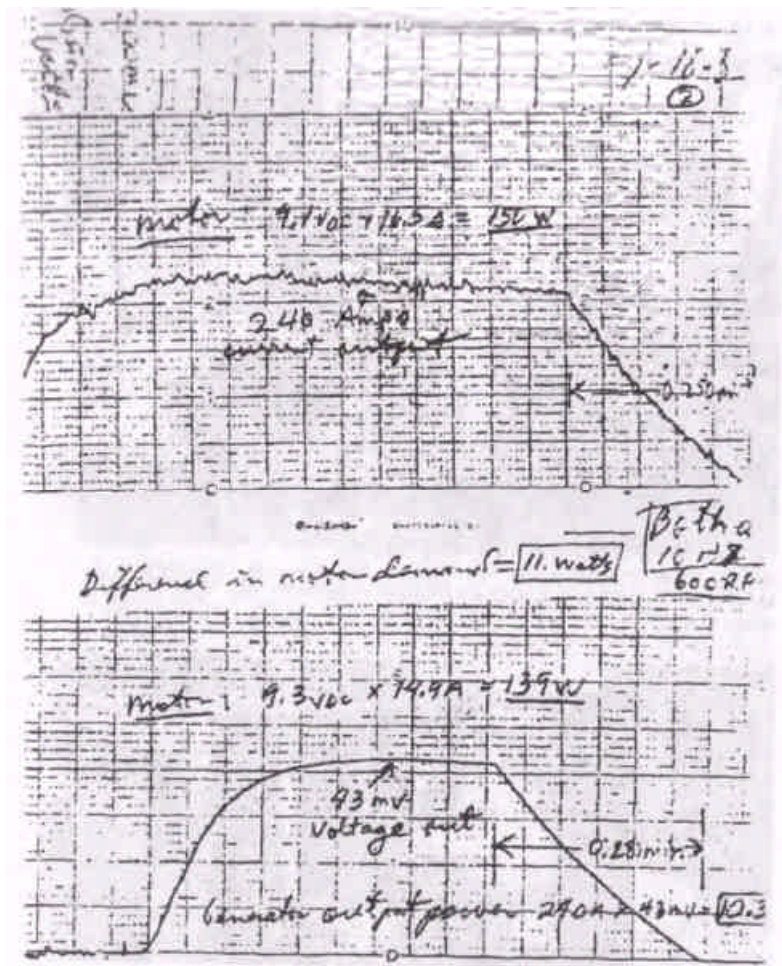 ②
motor 9.1 VDC × 16.5 A = 150 W
240 Amps
current output
0.250 min
Difference in motor demand = 11. watts
Both @
10 HZ
600 RP
motor: 9.3 VDC × 14.9A = 139 W
43 mv
voltage out
0.28 min.
Generator output power 240A × 43mv = 10.3